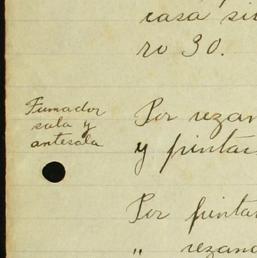 casa si
ro 30.
Fumador
sala y
antesala
Por rezan
y pintar
Por pintar
" rezan